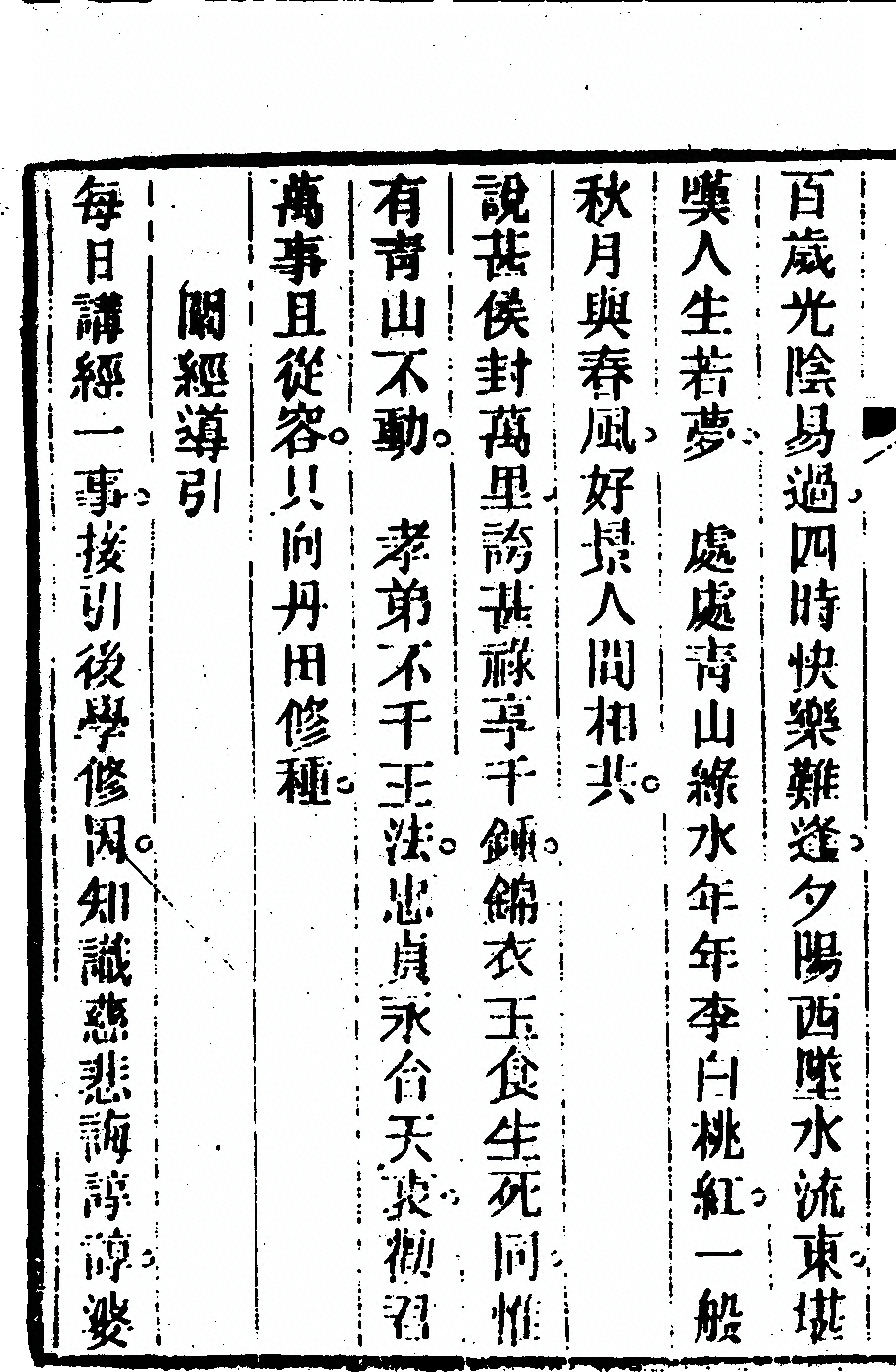 百歲光陰易過。四時快樂難逢。夕陽西墜水流東。堪
嘆人生若夢。　處處青山綠水年年李白桃紅。一般
秋月與春風。好景人間相共。
說甚侯封萬里。誇甚祿享千鍾。錦衣玉食生死同。惟
有青山不動。　孝弟不干王法。忠貞永合天衷。勸君
萬事且從容。只向丹田修種。
開經導引
每日講經一事。接引後學修因。知識慈悲誨諄諄。婆